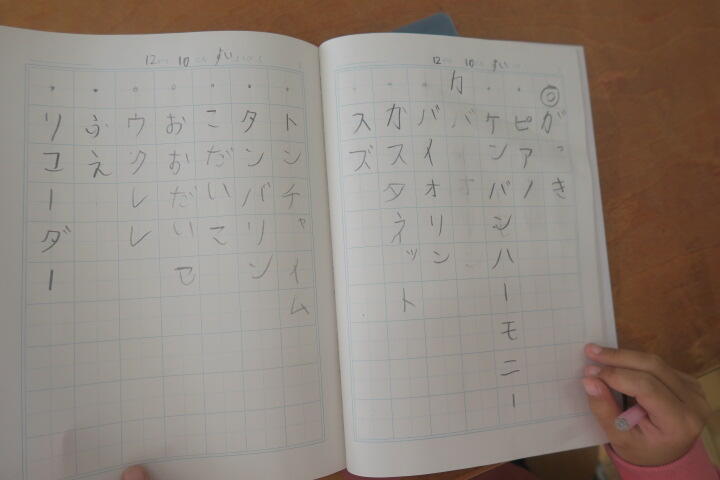 12 10 すい
◎がっき
・ピアノ
・ケンバンハーモニー
カ
バイオリン
カスタネット
スズ
12 10 すい
・トンチャイム
・タンバリン
・こだいこ
・おおだいこ
・ウクレレ
・ふえ
・リコーダー